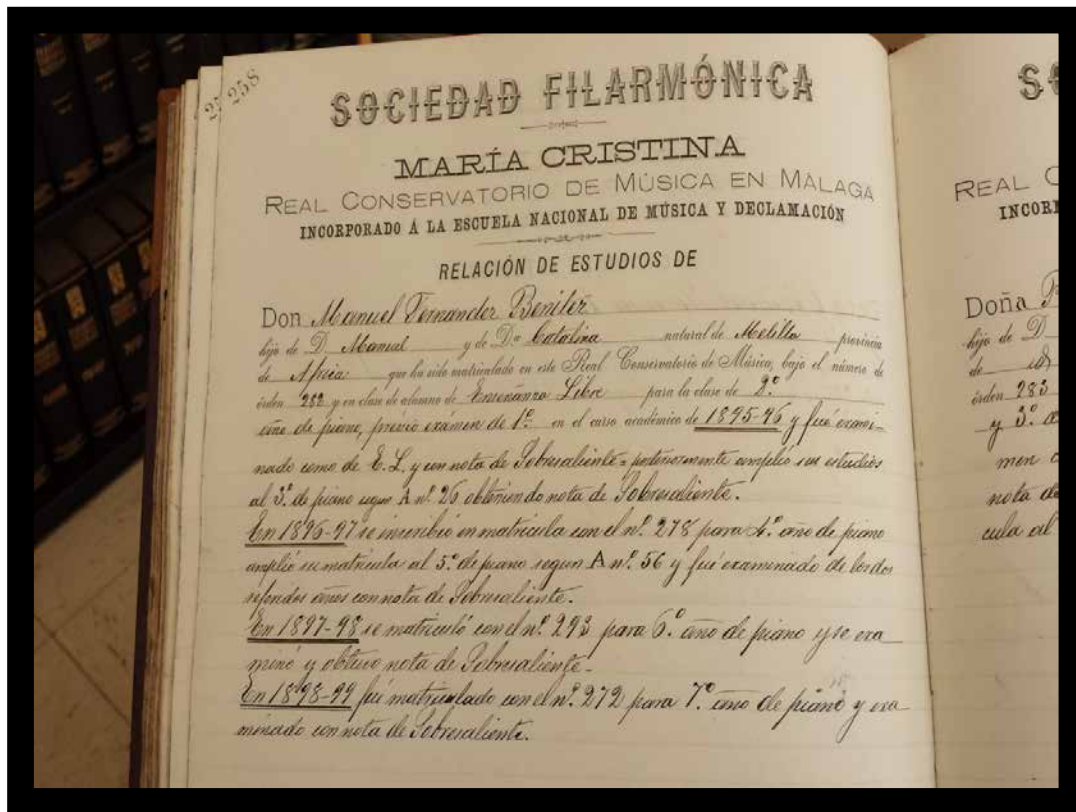 258
SOCIEDAD FILARMÓNICA
MARÍA CRISTINA
REAL CONSERVATORIO DE MÚSICA EN MÁLAGA
INCORPORADO Á LA ESCUELA NACIONAL DE MÚSICA Y DECLAMACIÓN
RELACIÓN DE ESTUDIOS DE
Don Manuel Fernandez Benitez
hijo de D. Manuel y de Da Catalina natural de Melilla provincia
de Africa que ha sido matriculado en este Real Conservatorio de Música, bajo el número de
órden 282 y en clase de alumno de Enseñanza Libre para la clase de 2º
año de piano, previo exámen de 1º en el curso académico de 1895-96 y fué exami-
nado como de E. L. y con nota de Sobresaliente = posteriormente amplió sus estudios
al 3º de piano segun A nº 26 obteniendo nota de Sobresaliente.
En 1896-97 se inscribió en matrícula con el nº 278 para 4º año de piano
amplió su matricula al 5º de piano segun A nº 56 y fué examinado de los dos
referidos años con nota de Sobresaliente.
En 1897-98 se matriculó con el nº 293 para 6º año de piano y se exa
minó y obtuvo nota de Sobresaliente -
En 1898-99 fué matriculado con el nº 272 para 7º año de piano y exa
minado con nota de Sobresaliente.
REAL
INCOR
Doña
hijo de D.
de
órden 283
y 3º
men
nota de
cula al